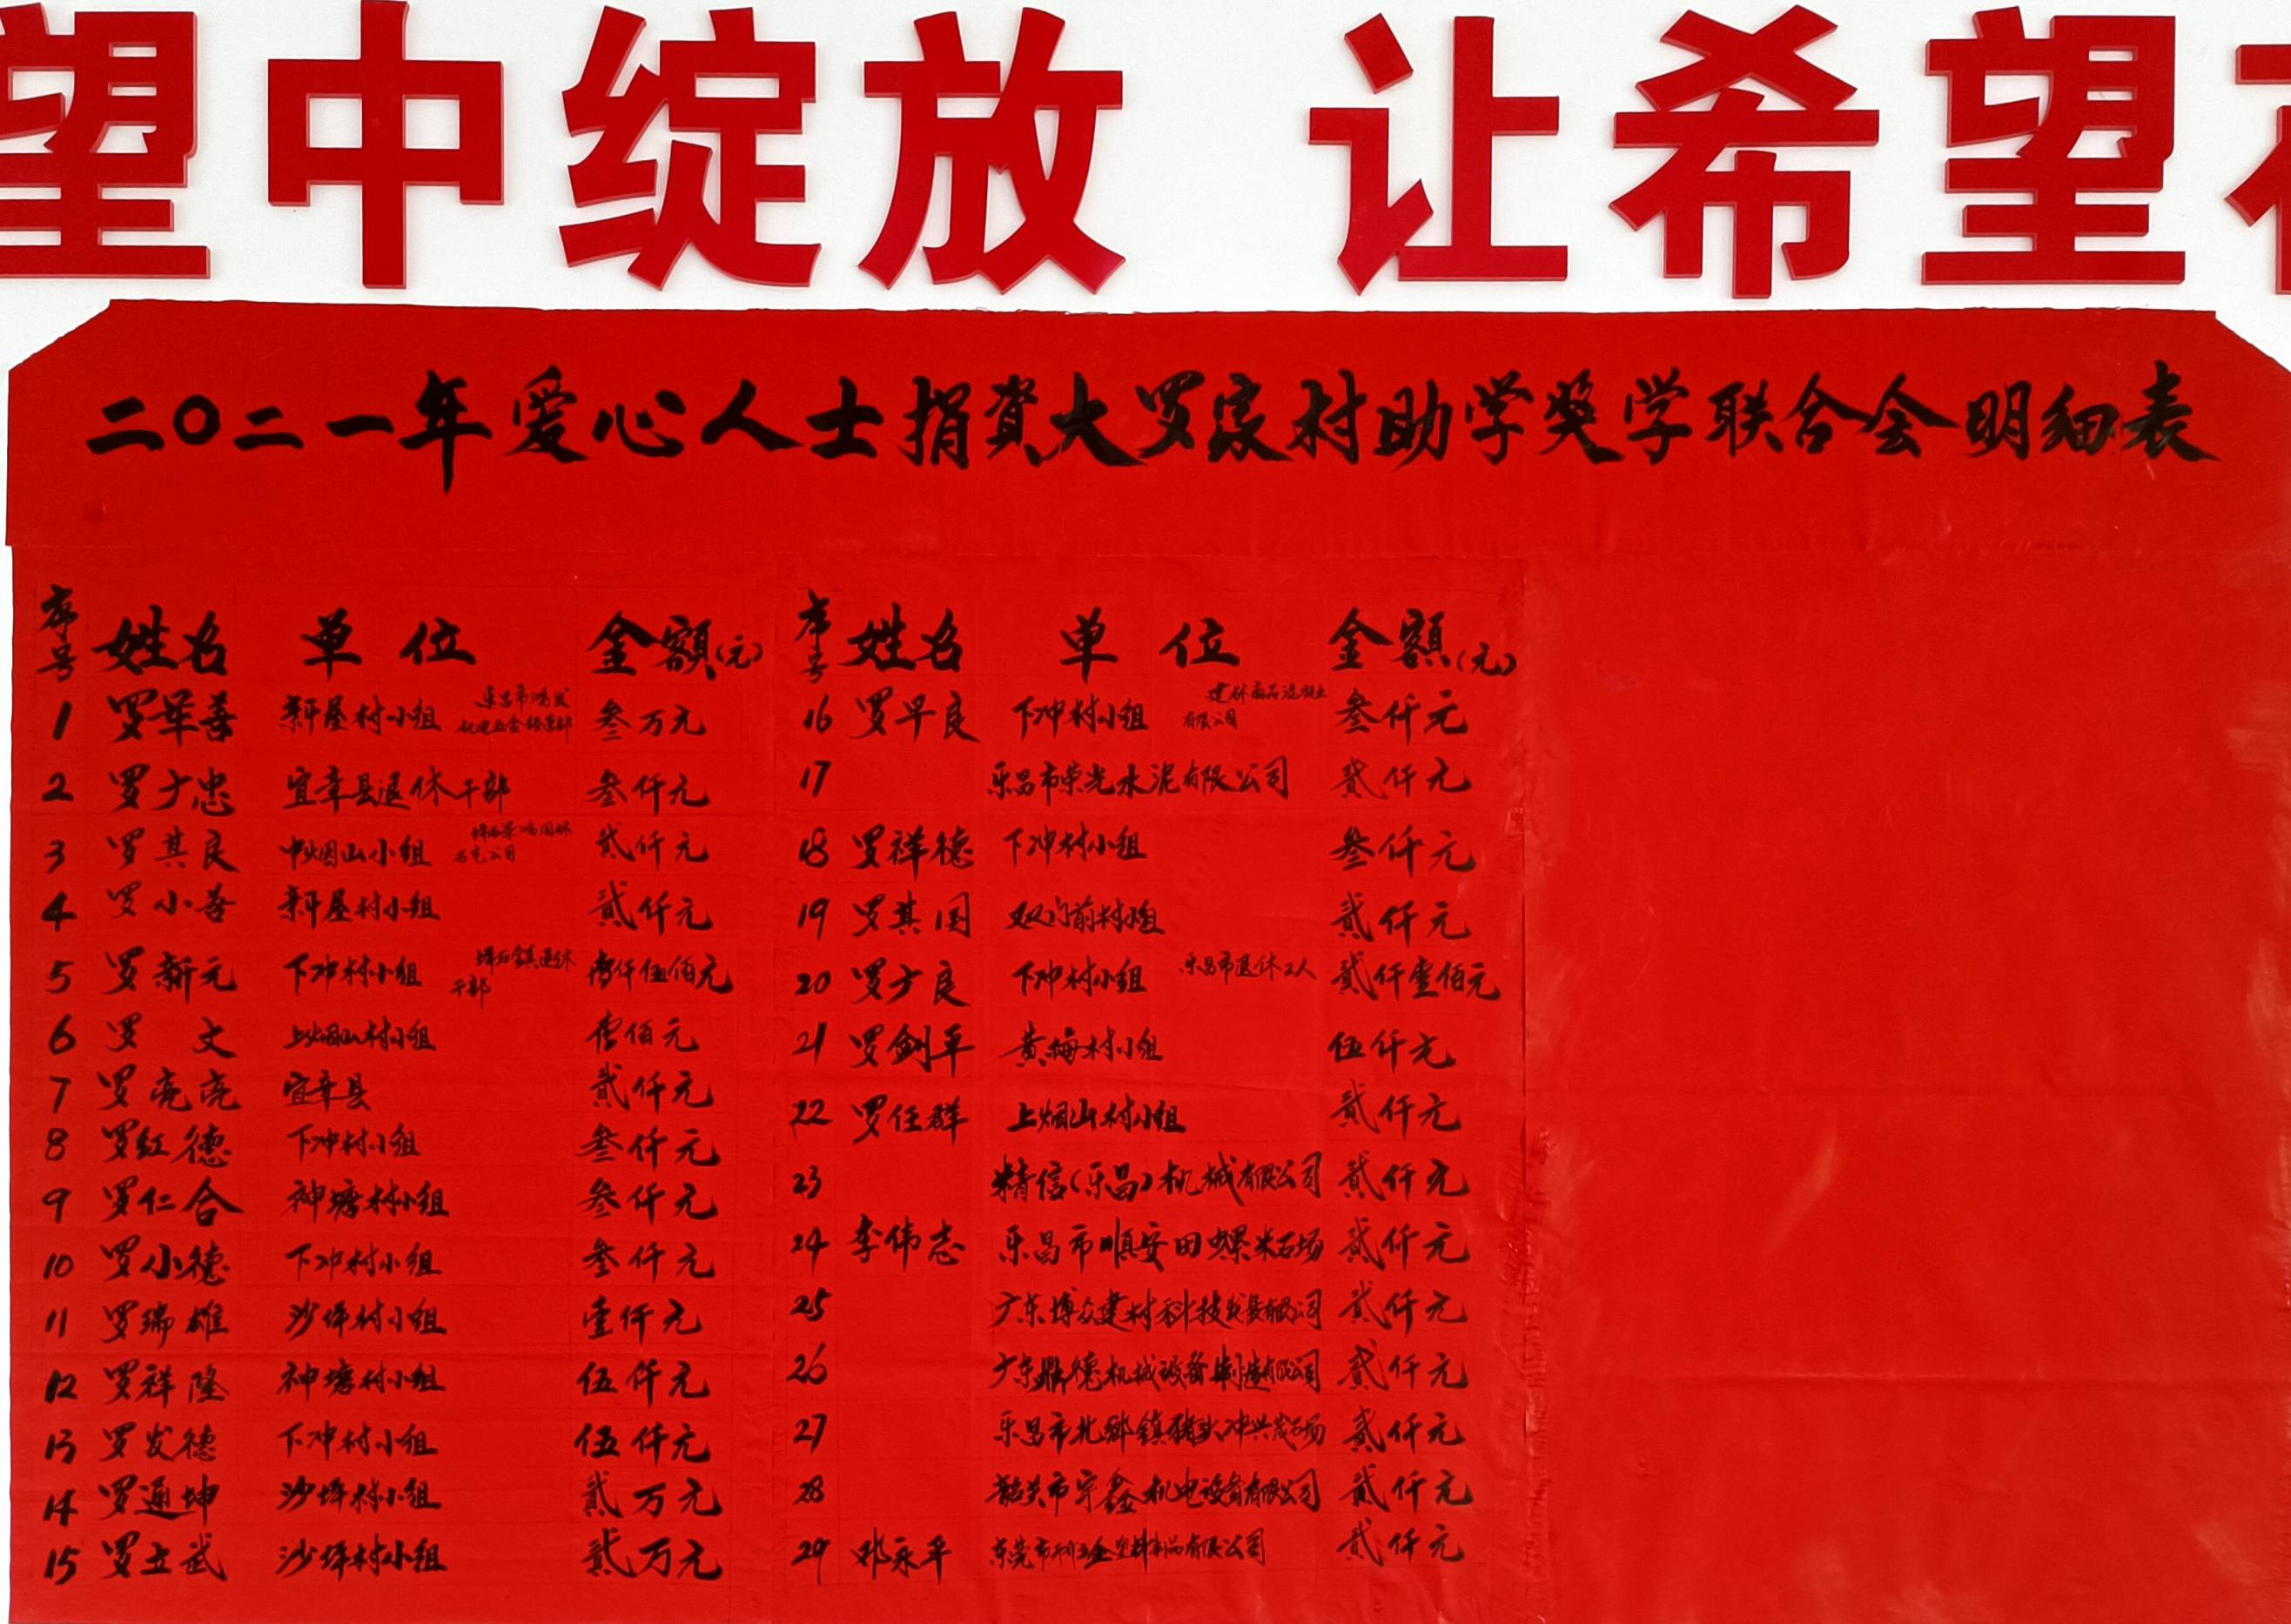 望中绽放 让希望
二〇二一年爱心人士捐資大罗家村助学奖学联合会明细表
序号 姓名 单位 金额(元) 序号 姓名 单位 金额(元)
1 罗举善 新屋村小组 乐昌市鸿发机电五金经营部 叁万元
2 罗才忠 宜章县退休干部 叁仟元
3 罗其良 中烟山小组 贰仟元
4 罗小善 新屋村小组 贰仟元
5 罗新元 下冲村小组 坪石镇退休干部 壹仟伍佰元
6 罗文 上烟山村小组 壹佰元
7 罗亮亮 宜章县 贰仟元
8 罗红德 下冲村小组 叁仟元
9 罗仁合 神塘村小组 叁仟元
10 罗小德 下冲村小组 叁仟元
11 罗瑞雄 沙坪村小组 壹仟元
12 罗祥隆 神塘村小组 伍仟元
13 罗发德 下冲村小组 伍仟元
14 罗通坤 沙坪村小组 贰万元
15 罗立武 沙坪村小组 贰万元
16 罗早良 下冲村小组 建研商品混凝土有限公司 叁仟元
17 乐昌市荣光水泥有限公司 贰仟元
18 罗祥德 下冲村小组 叁仟元
19 罗其国 双门前村小组 贰仟元
20 罗才良 下冲村小组 乐昌市退休工人 贰仟壹佰元
21 罗剑平 黄梅村小组 伍仟元
22 罗任群 上烟山村小组 贰仟元
23 精信(乐昌)机械有限公司 贰仟元
24 李伟志 乐昌市顺安田螺米石场 贰仟元
25 广东博众建材科技发展有限公司 贰仟元
26 广东鼎德机械设备制造有限公司 贰仟元
27 乐昌市北鄉鎮猪头冲兴茂石场 贰仟元
28 韶关市宇鑫机电设备有限公司 贰仟元
29 邓永平 东莞市 五金塑料制品有限公司 贰仟元